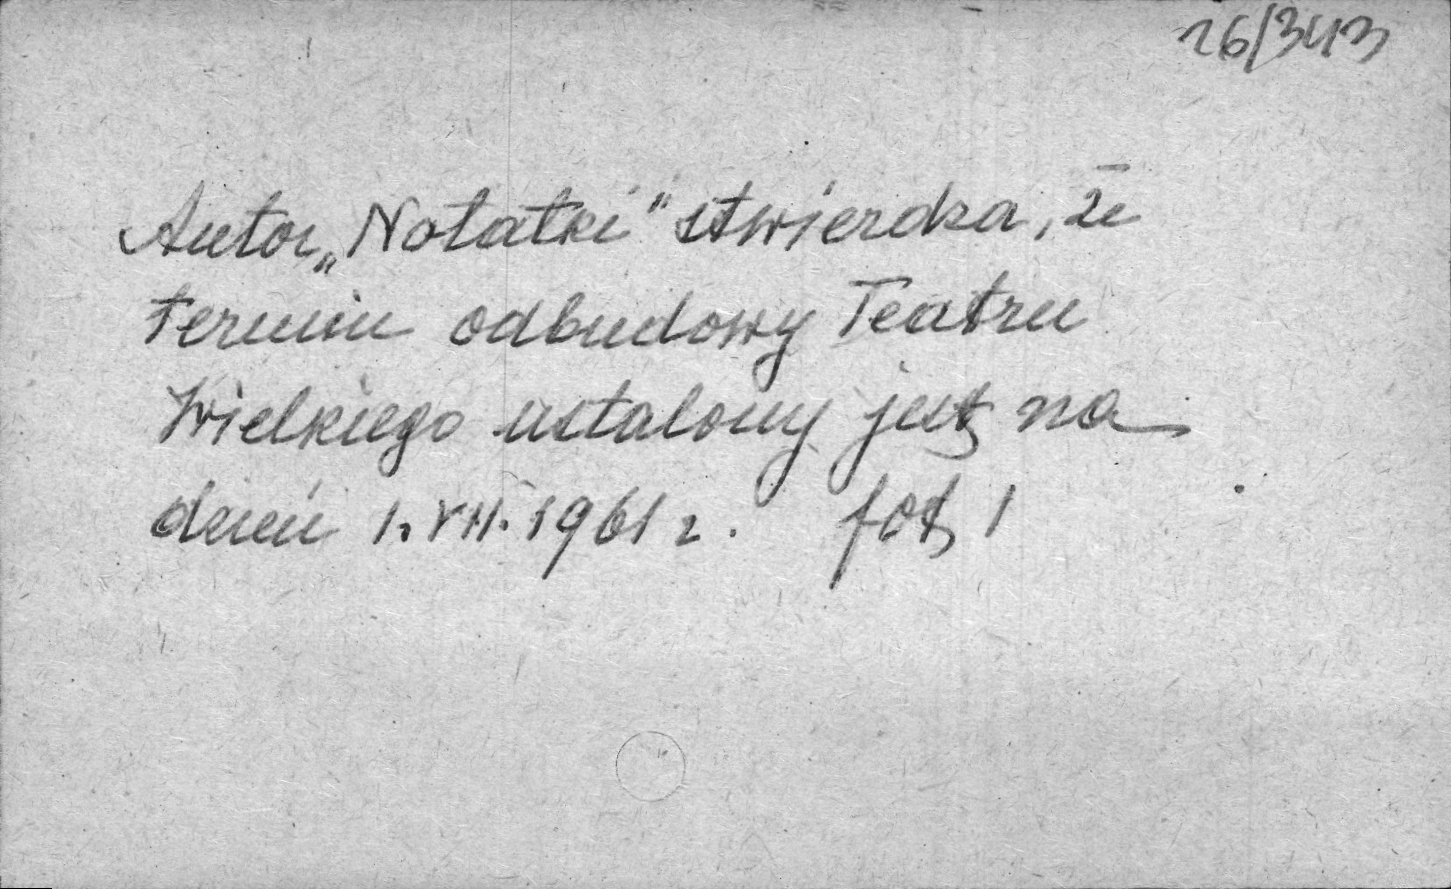 26/343
Autor „Notatki" stwierdza, że
termin odbudowy Teatru
Wielkiego ustalony jest na
dzień 1. VII. 1961 r. fot 1